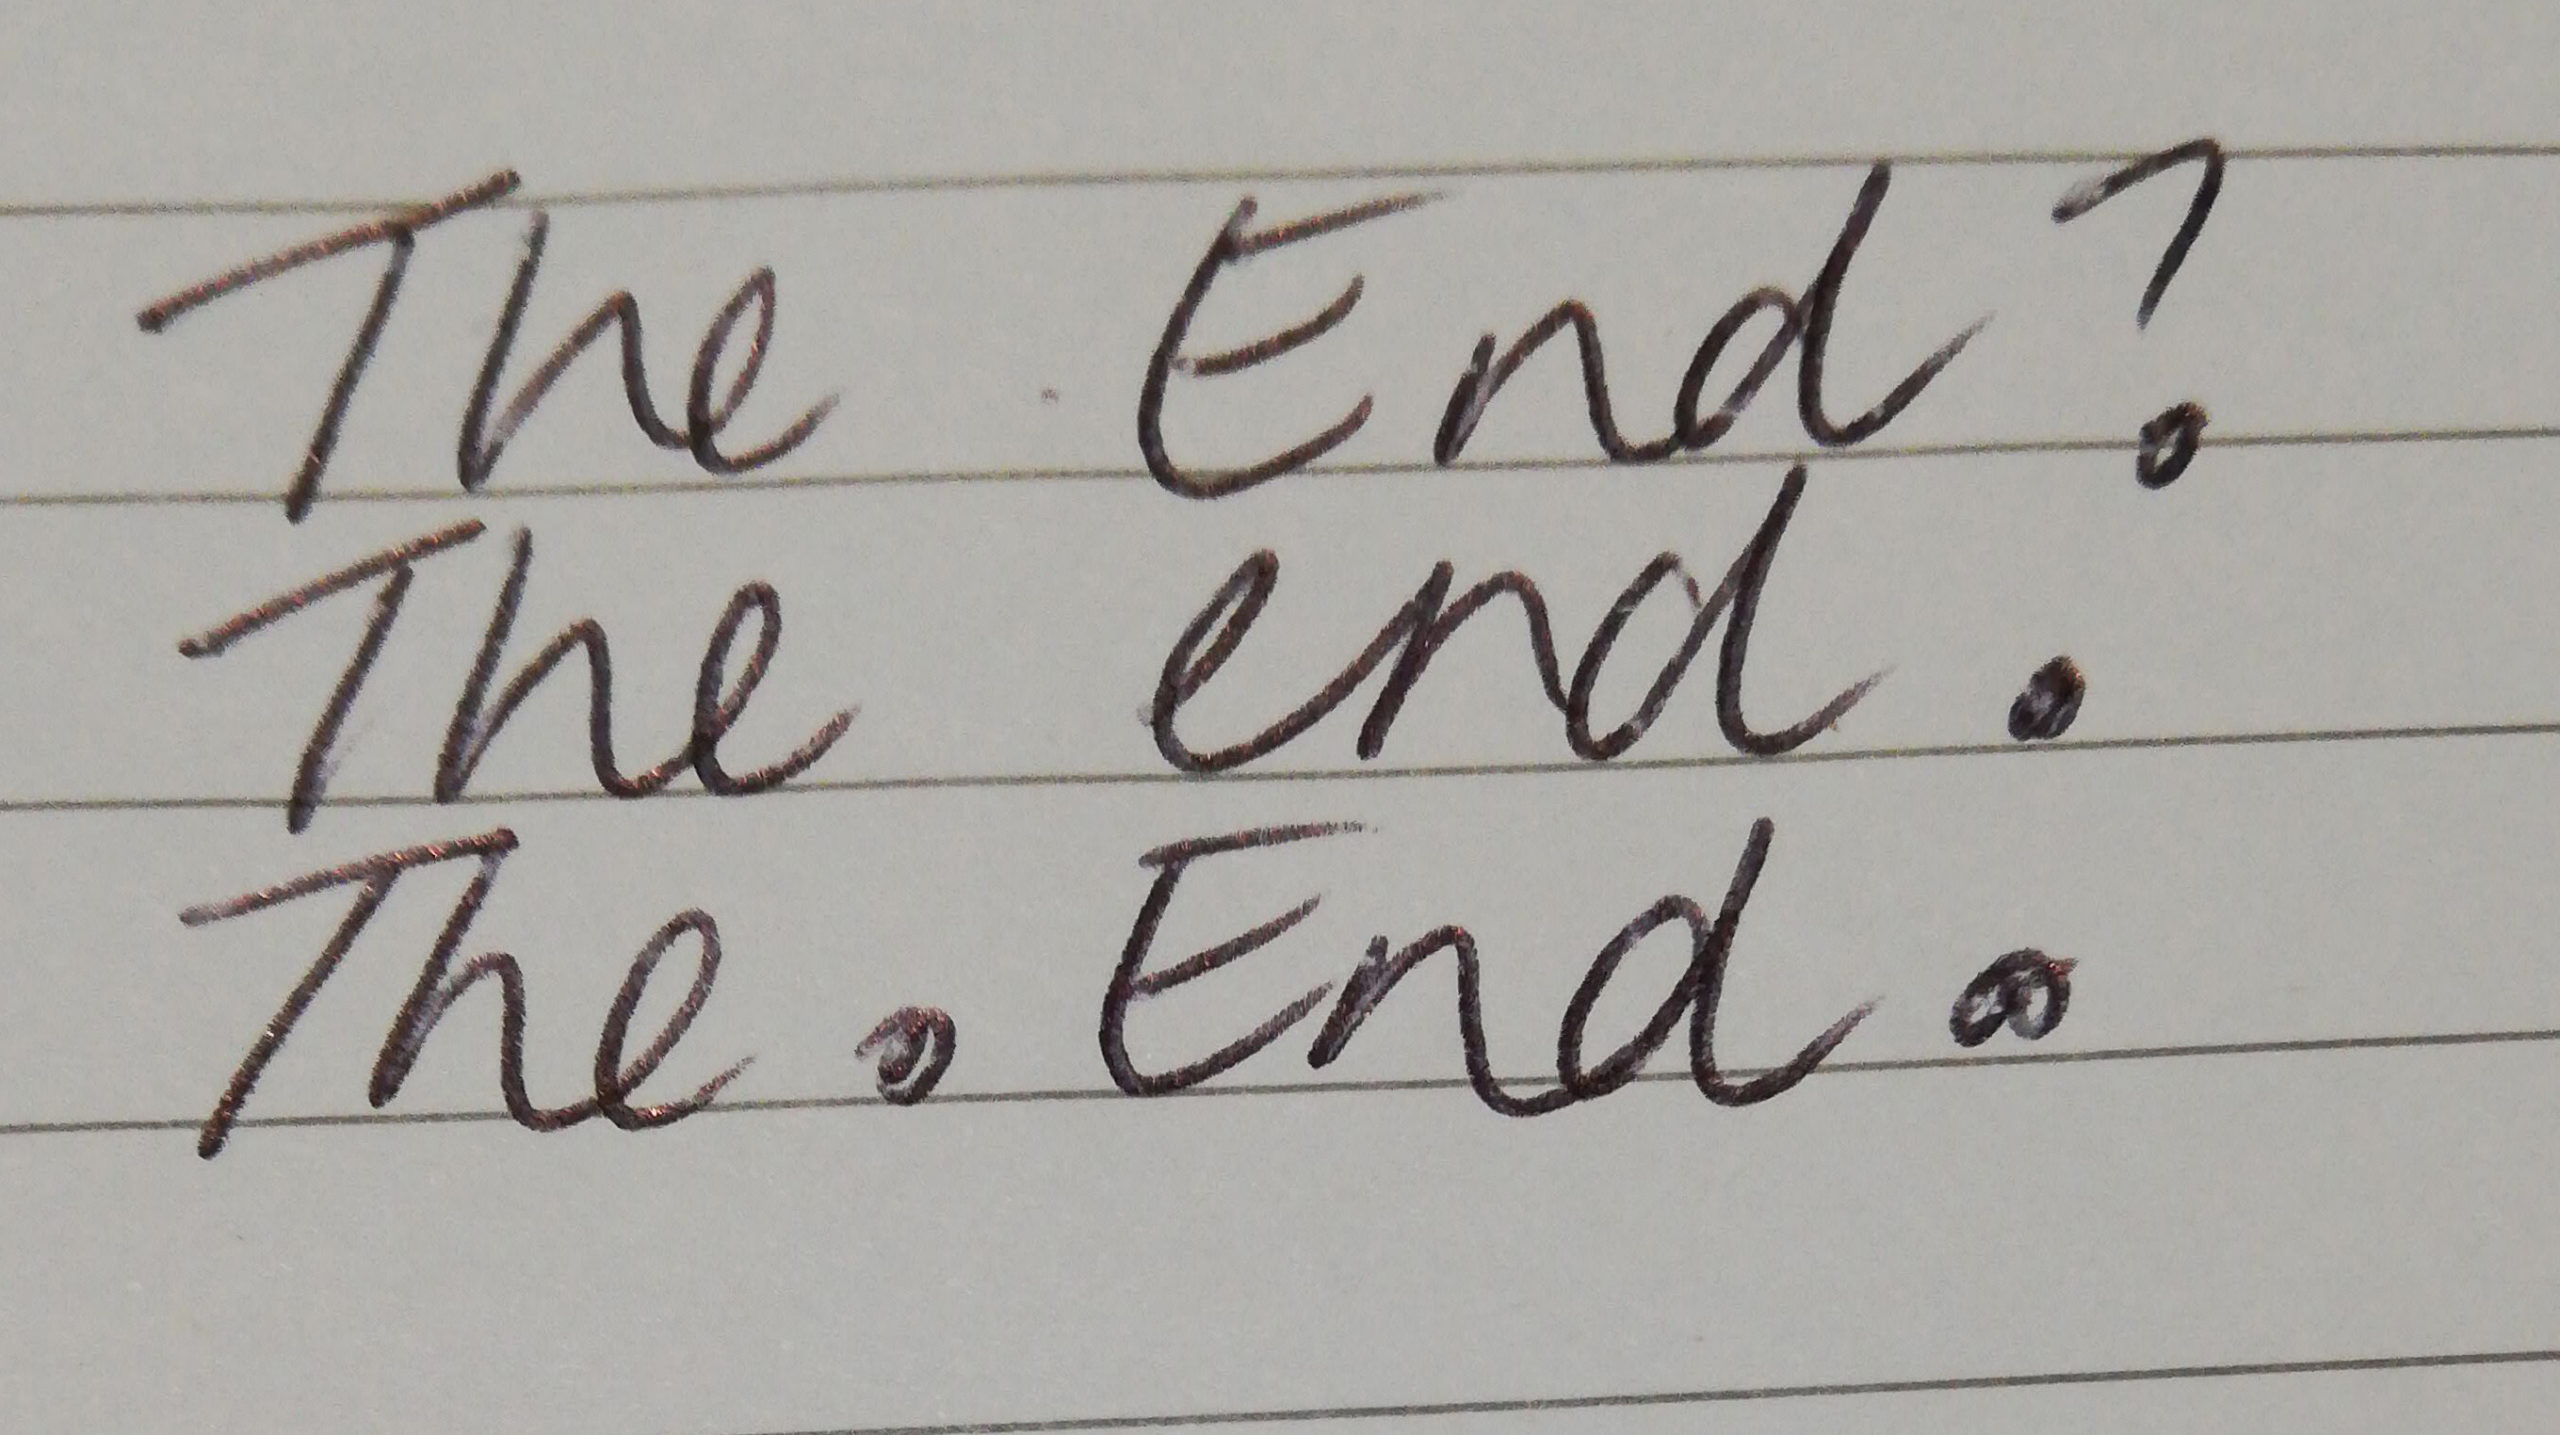 The End?
The end.
The. End.